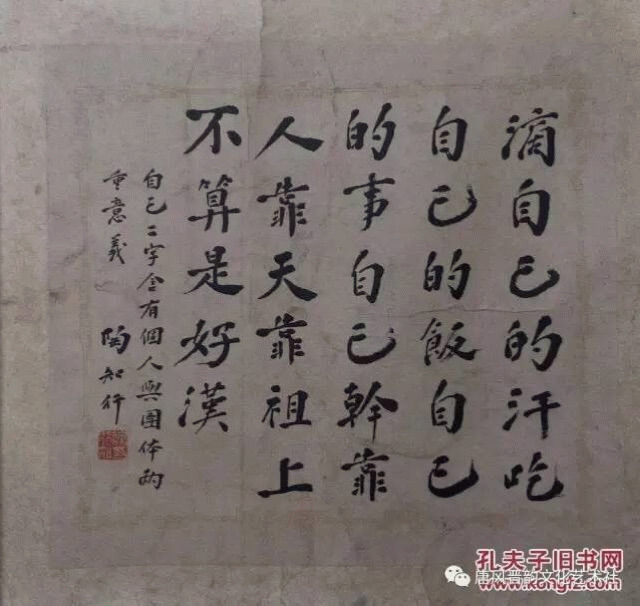 滴自己的汗吃
自己的飯自己
的事自己幹靠
人靠天靠祖上
不算是好漢
自己二字含有個人與團体兩
重意義
陶知行
孔夫子旧书网
www.kongfz.com
唐风晋韵文化艺术社